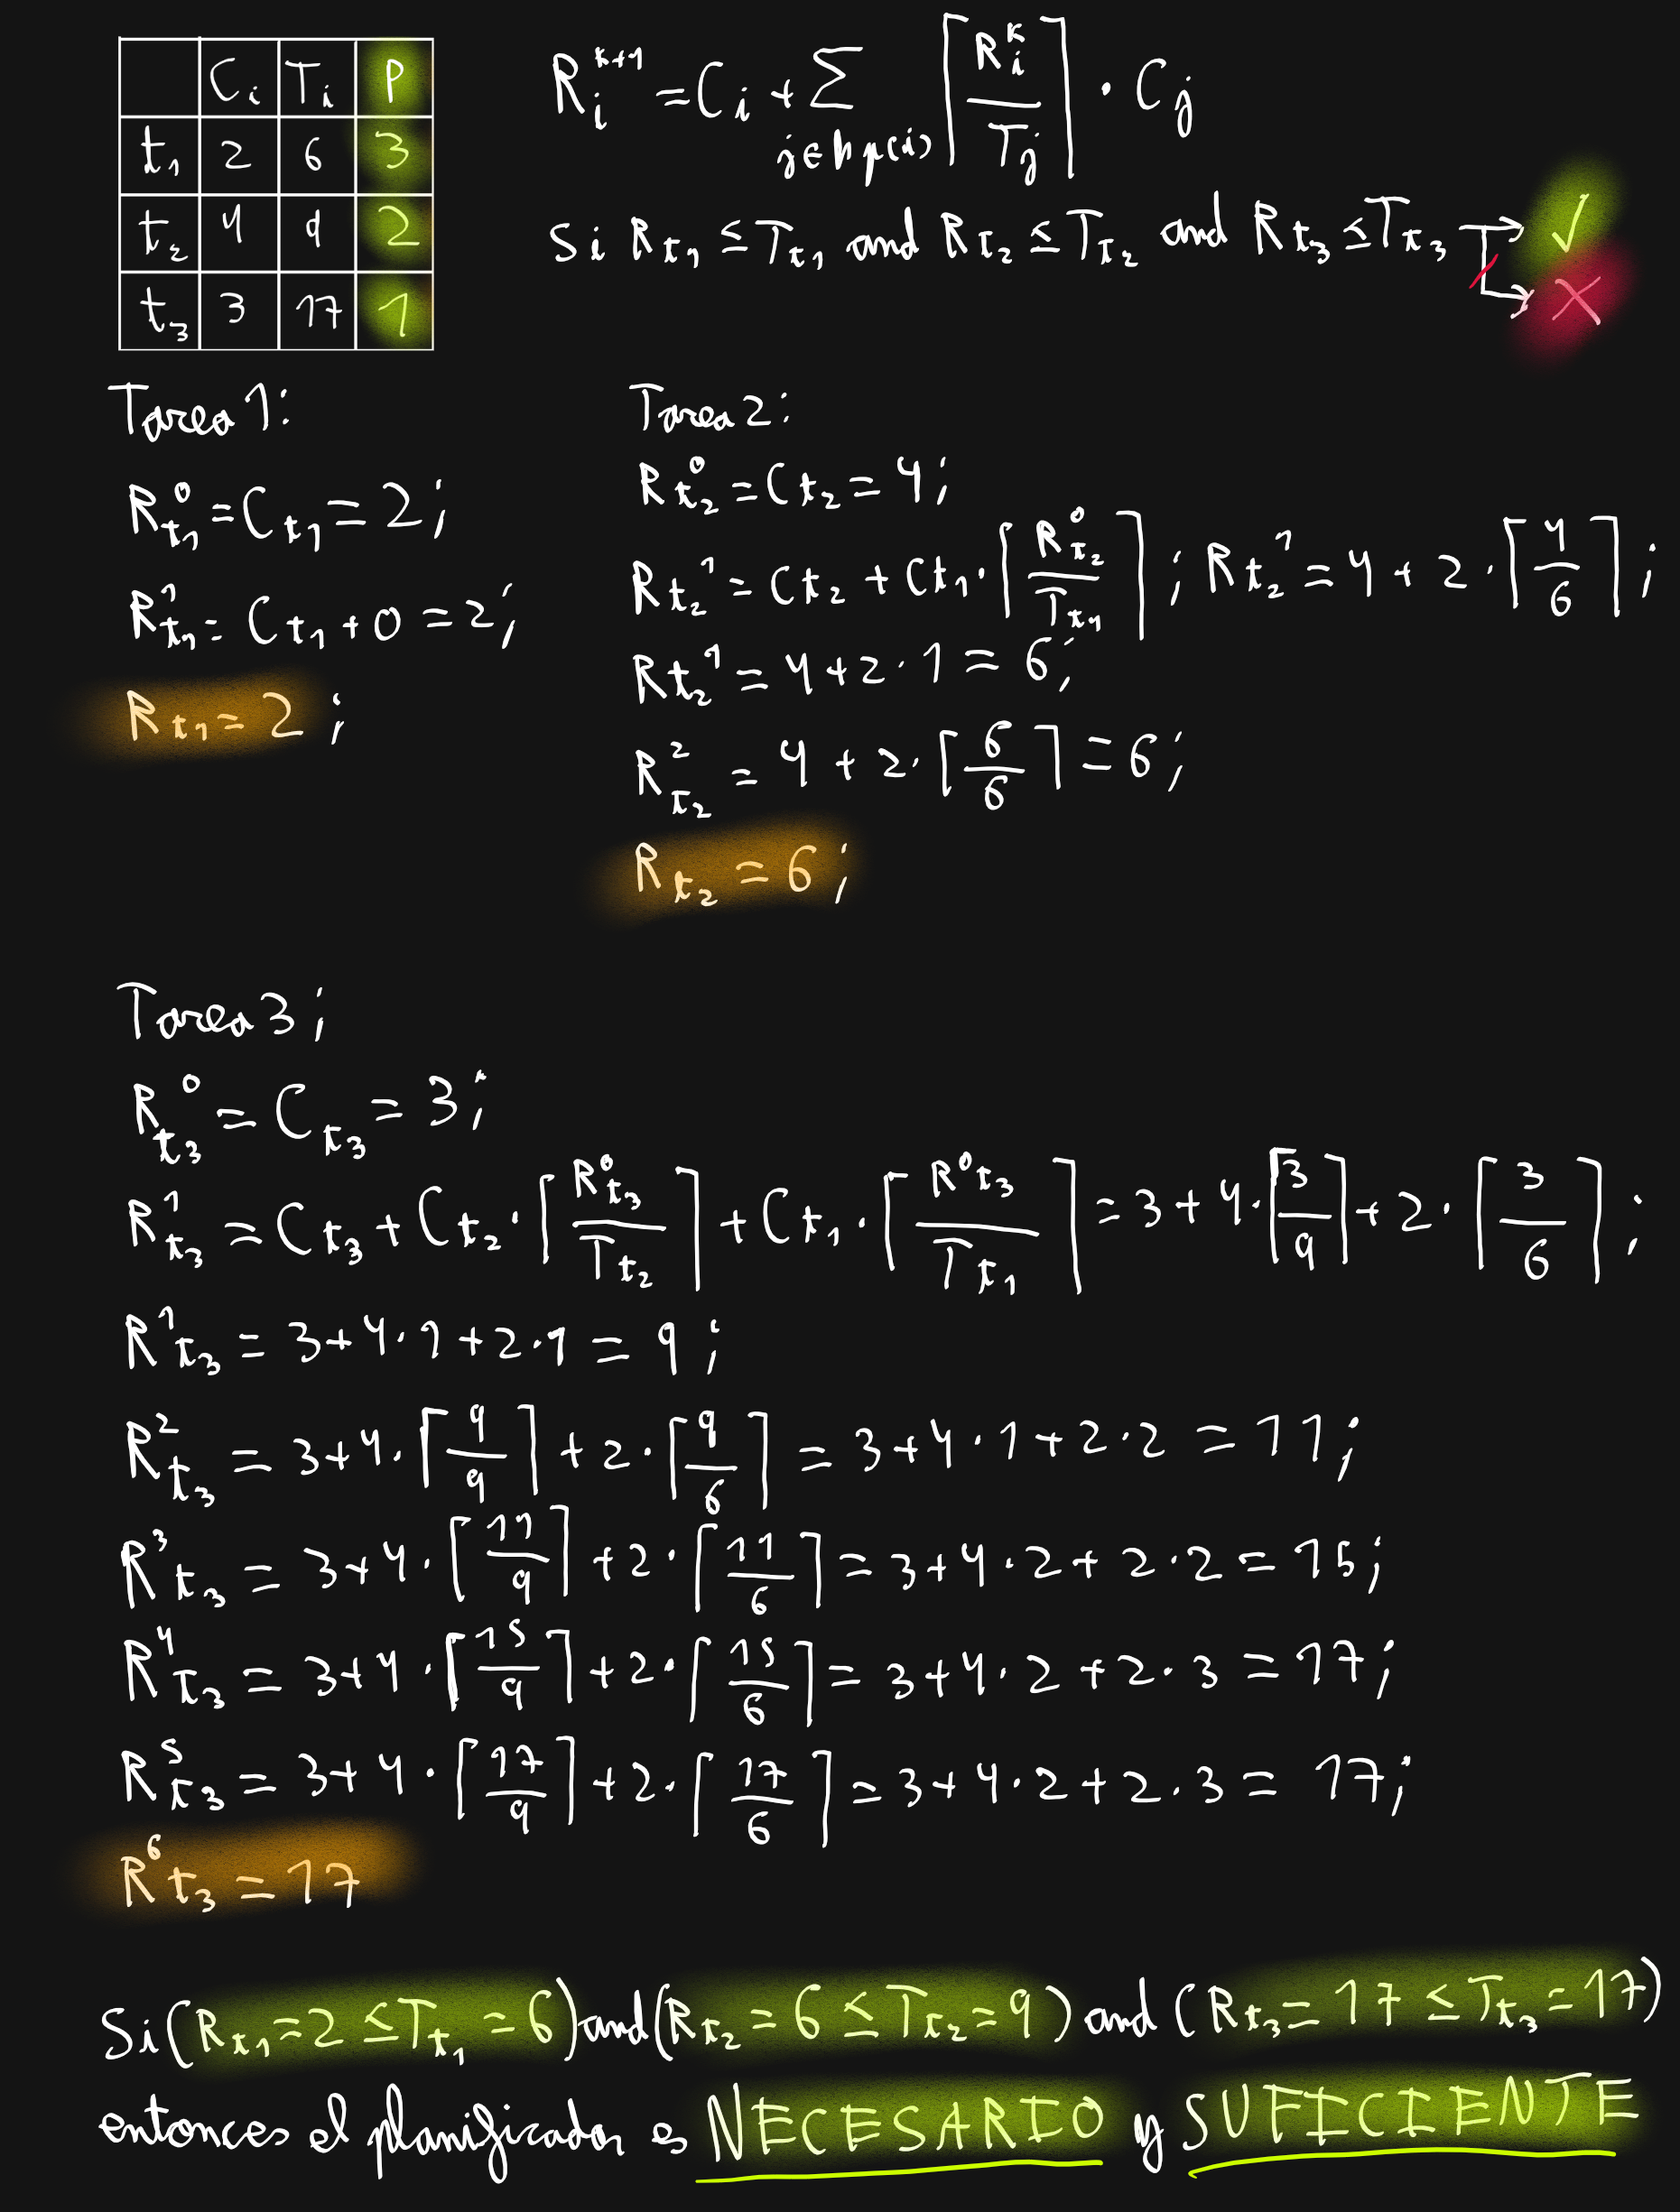 C_i T_i P
t_1 2 6 3
t_2 4 9 2
t_3 3 17 1
R_i^{k+1} = C_i + Σ_{j∈hp(i)} ⌈R_i^k / T_j⌉ · C_j
Si R_{t_1} ≤ T_{t_1} and R_{t_2} ≤ T_{t_2} and R_{t_3} ≤ T_{t_3} → ✓
→ X
Tarea 1:
R_{t_1}^0 = C_{t_1} = 2;
R_{t_1}^1 = C_{t_1} + 0 = 2;
R_{t_1} = 2;
Tarea 2:
R_{t_2}^0 = C_{t_2} = 4;
R_{t_2}^1 = C_{t_2} + C_{t_1} · ⌈R_{t_2}^0 / T_{t_1}⌉; R_{t_2}^1 = 4 + 2 · ⌈4/6⌉;
R_{t_2}^1 = 4 + 2 · 1 = 6;
R_{t_2}^2 = 4 + 2 · ⌈6/6⌉ = 6;
R_{t_2} = 6;
Tarea 3;
R_{t_3}^0 = C_{t_3} = 3;
R_{t_3}^1 = C_{t_3} + C_{t_2} · ⌈R_{t_3}^0 / T_{t_2}⌉ + C_{t_1} · ⌈R^0_{t_3} / T_{t_1}⌉ = 3 + 4 · ⌈3/9⌉ + 2 · ⌈3/6⌉;
R^1_{t_3} = 3 + 4 · 1 + 2 · 1 = 9;
R^2_{t_3} = 3 + 4 · ⌈9/9⌉ + 2 · ⌈9/6⌉ = 3 + 4 · 1 + 2 · 2 = 11;
R^3_{t_3} = 3 + 4 · ⌈11/9⌉ + 2 · ⌈11/6⌉ = 3 + 4 · 2 + 2 · 2 = 15;
R^4_{t_3} = 3 + 4 · ⌈15/9⌉ + 2 · ⌈15/6⌉ = 3 + 4 · 2 + 2 · 3 = 17;
R^5_{t_3} = 3 + 4 · ⌈17/9⌉ + 2 · ⌈17/6⌉ = 3 + 4 · 2 + 2 · 3 = 17;
R^6_{t_3} = 17
Si (R_{t_1} = 2 ≤ T_{t_1} = 6) and (R_{t_2} = 6 ≤ T_{t_2} = 9) and (R_{t_3} = 17 ≤ T_{t_3} = 17)
entonces el planificador es NECESARIO y SUFICIENTE